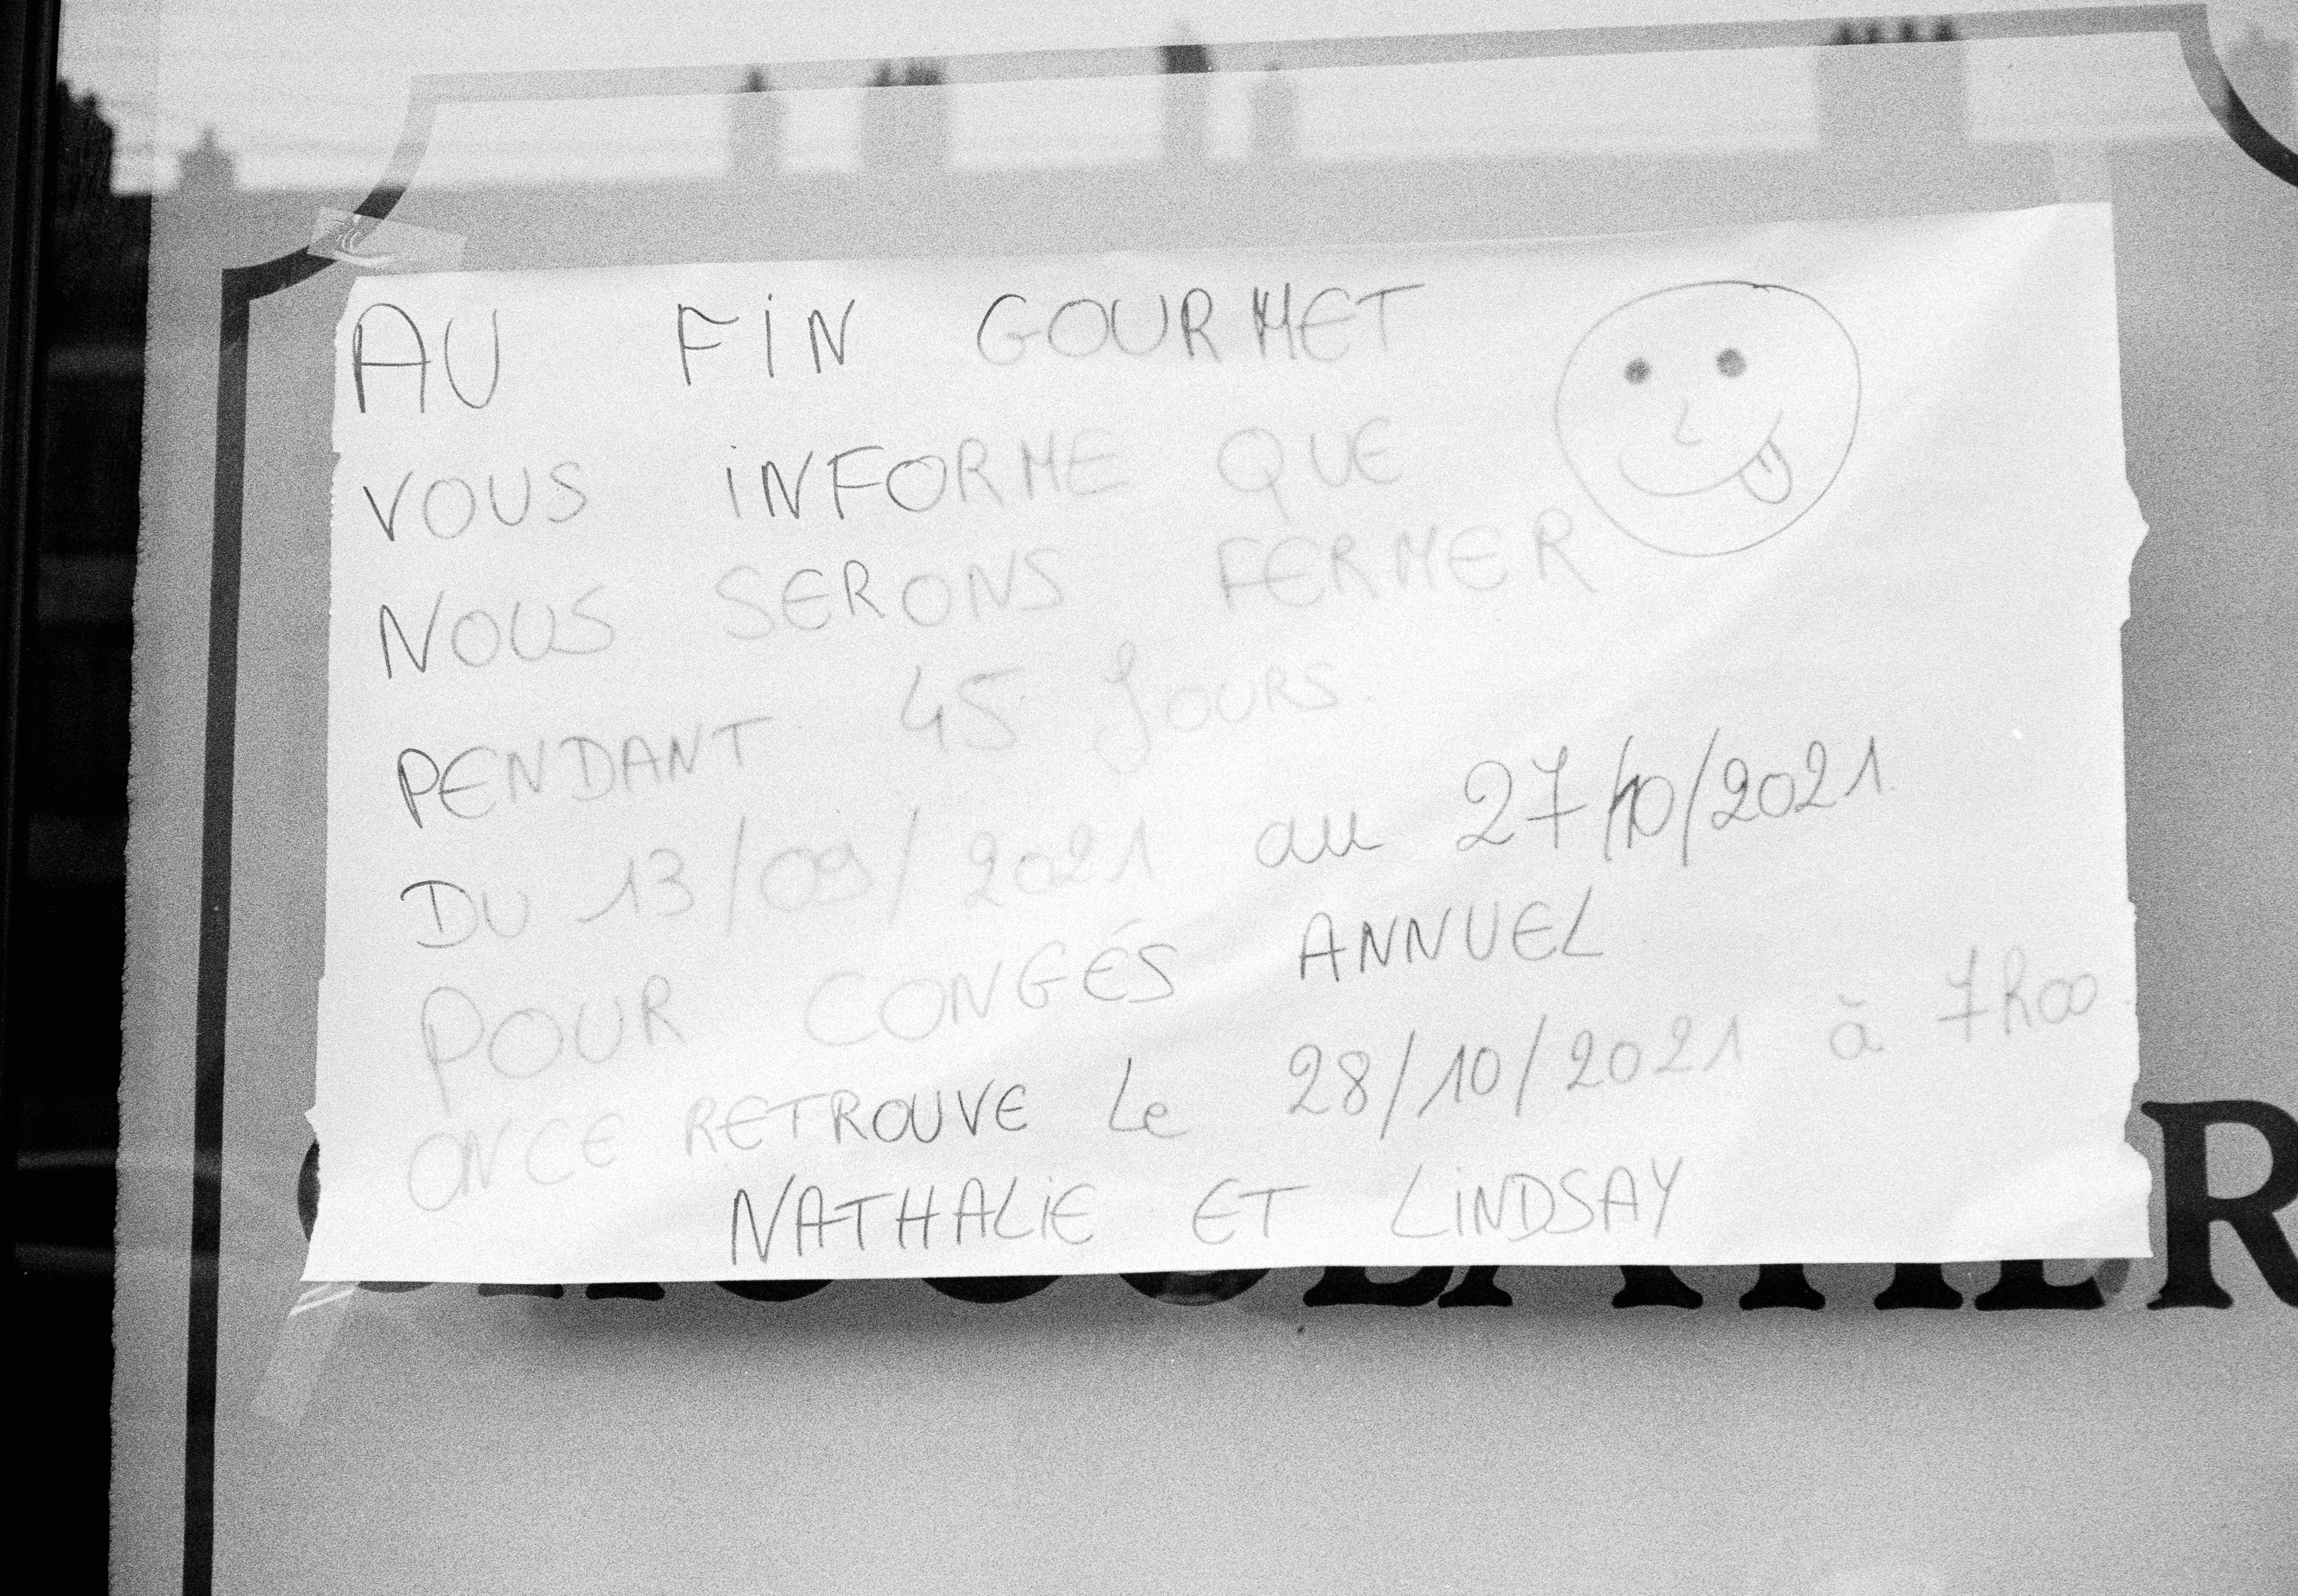 AU FIN GOURMET
VOUS INFORME QUE
NOUS SERONS FERMER
PENDANT 45 JOURS.
DU 13/09/2021 au 27/10/2021.
POUR CONGÉS ANNUEL
ON CE RETROUVE Le 28/10/2021 à 7h00.
NATHALIE ET LINDSAY
CHOCOLATIER